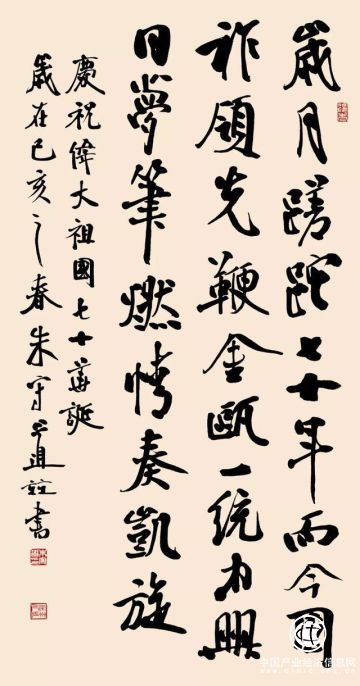 歲月蹉跎七十年而今國
祚領先鞭金甌一統中興
日夢筆燃情奏凱旋
慶祝偉大祖國七十華誕
歲在己亥之春朱守道並書
中国产业经济信息网
www.cinic.org.cn